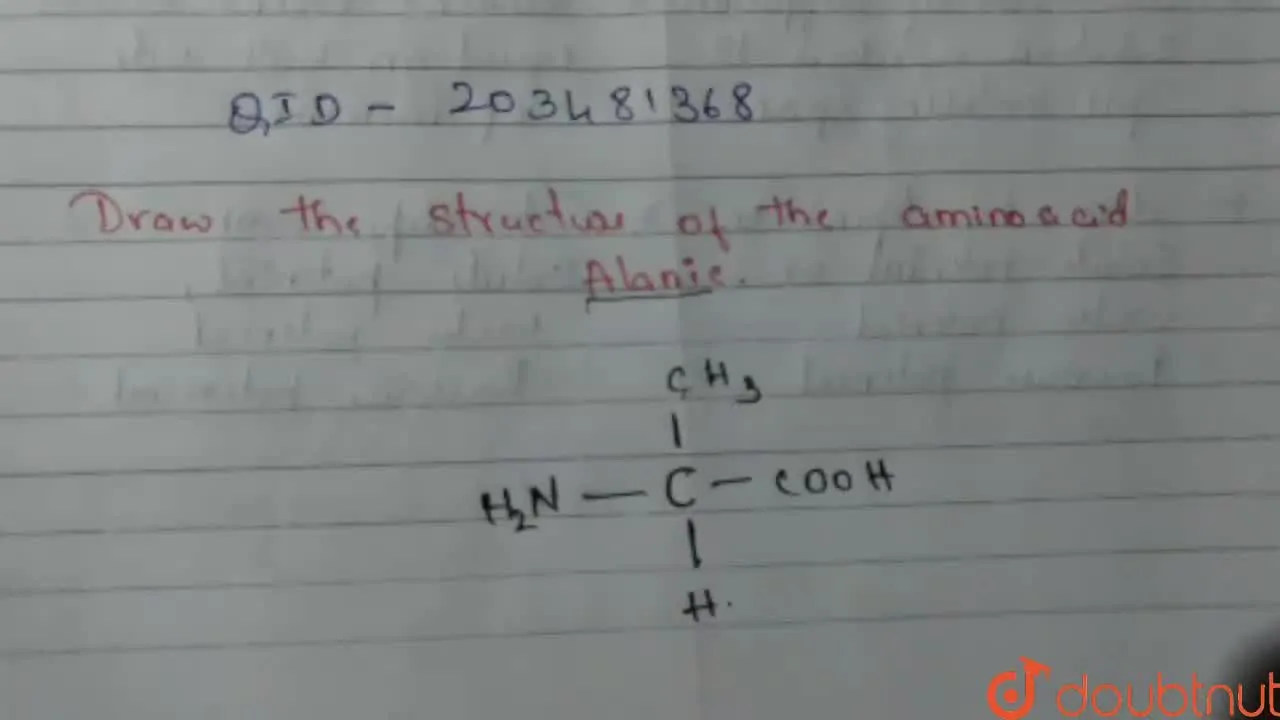 Q,ID - 203481368
Draw the structure of the amino acid
Alanie.
CH3
H2N — C — COOH
H.
doubtnut